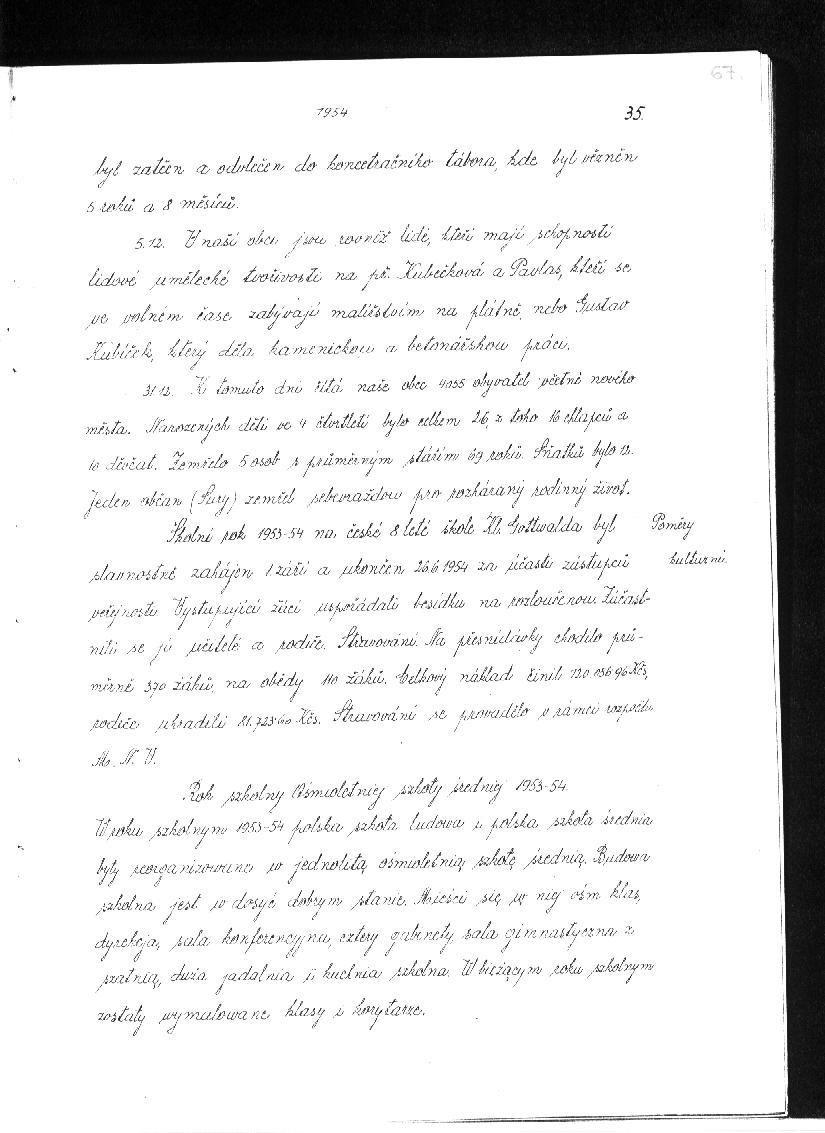 67.
1954
35.
byl zatčen a odvlečen do koncetračního tábora, kde byl vězněn
5 roků a 8 měsíců.
5.12. V naší obci jsou rovněž lidé, kteří mají schopnosti
lidové umělecké tvořivosti na př. Kubečková a Pavlas, kteří se
ve volném čase zabývají malířstvím na plátně, nebo Gustav
Kubíček, který dělá kamenickou a betonářskou práci.
31.12. K tomuto dni čítá naše obec 4055 obyvatel včetně nového
města. Narozených dětí ve 4 čtvrtletí bylo celkem 26, z toho 16 chlapců a
10 děvčat. Zemřelo 5 osob s průměrným stářím 69 roků. Sňatků bylo 12.
Jeden občan (Sury) zemřel sebevraždou pro rozháraný rodinný život.
Školní rok 1953-54 na české 8 leté škole Kl. Gottwalda byl
Poměry
kulturní.
slavnostně zahájen 1. září a ukončen 26.6.1954 za účasti zástupců
veřejnosti. Vystupující žáci uspořádali besídku na rozloučenou. Zúčast-
nili se jí učitelé a rodiče. Stravování. Na přesnídávky chodilo prů-
měrně 370 žáků, na obědy 110 žáků. Celkový náklad činil 120.056.96 Kčs,
rodiče uhradili 81.723.60 Kčs. Stravování se provadělo v rámci rozpočtu
M. N. V.
Rok szkolny Ośmioletniej szkoły średniej 1953-54.
W roku szkolnym 1953-54 polska szkoła ludowa i polska szkoła średnia
były reorganizowane w jednolitą ośmioletnią szkołę średnią. Budowa
szkolna jest w dosyć dobrym stanie. Mieści się w niej ośm klas,
dyrekcja, sala konferencyjna, cztery gabinety, sala gimnastyczna z
szatnią, duża jadalnia i kuchnia szkolna. W bieżącym roku szkolnym
zostały wymalowane klasy i korytarze.